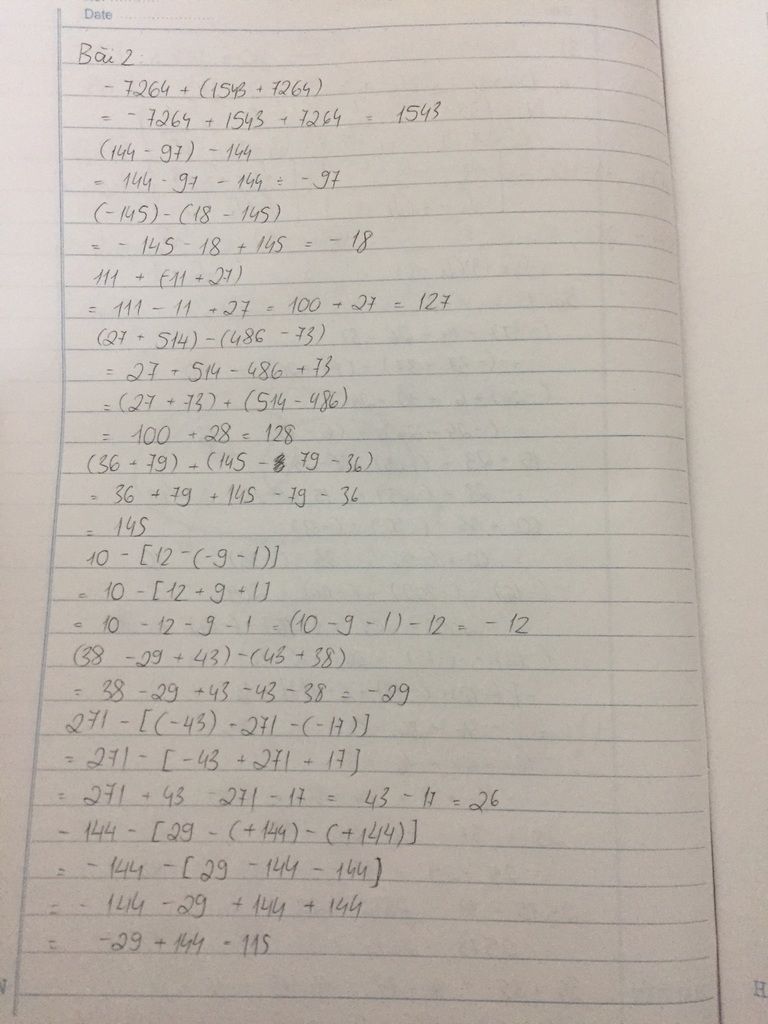 Date
Bài 2:
- 7264 + (1543 + 7264)
= - 7264 + 1543 + 7264 = 1543
(144 - 97) - 144
= 144 - 97 - 144 = -97
(-145) - (18 - 145)
= - 145 - 18 + 145 = - 18
111 + (-11 + 27)
= 111 - 11 + 27 = 100 + 27 = 127
(27 + 514) - (486 - 73)
= 27 + 514 - 486 + 73
= (27 + 73) + (514 - 486)
= 100 + 28 = 128
(36 + 79) + (145 - 79 - 36)
= 36 + 79 + 145 - 79 - 36
= 145
10 - [12 - (-9 - 1)]
= 10 - [12 + 9 + 1]
= 10 - 12 - 9 - 1 = (10 - 9 - 1) - 12 = - 12
(38 - 29 + 43) - (43 + 38)
= 38 - 29 + 43 - 43 - 38 = -29
271 - [(-43) + 271 - (-17)]
= 271 - [-43 + 271 + 17]
= 271 + 43 - 271 - 17 = 43 - 17 = 26
- 144 - [29 - (+144) - (+144)]
= - 144 - [29 - 144 - 144]
= - 144 - 29 + 144 + 144
= -29 + 144 = 115
H